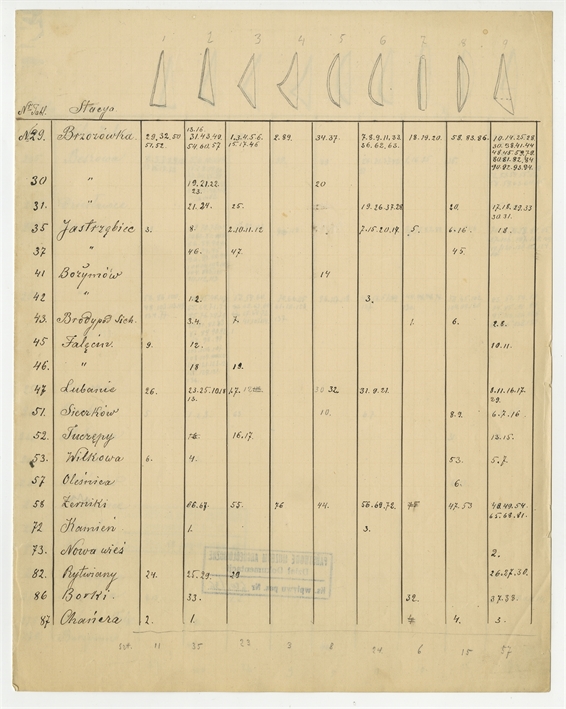 1 2 3 4 5 6 7 8 9
Stacya
№ 29. Brzozówka 29.32.50 13.16. 1.3.4.5.6. 2.89. 34.37. 7.8.9.11.33. 18.19.20. 58.83.86. 10.14.25.28.
51.52. 31.43.49. 15.17.46 36.62.63. 30.38.41.44
54.60.57 48.45.59.78
80.81.82.84.
90.92.93.94.
30 " 19.21.22. 20
23.
31. " 21.24. 25. 19.26.37.28 20. 17.18.29.33
30.31.
35 Jastrzębiec 3. 8. 2.10.11.12 7.15.20.14. 5. 6.16. 18.
37 " 46. 47. 45.
41 Bożymów 14
42 " 1.2. 3.
43. Brody pod Sich. 3.4. 7. 1. 6. 2.8.
45 Falęcin 9. 12. 10.11.
46. " 18 19.
47 Lubanie 26. 23.25.10.18 27. 32. 31.9.21. 8.11.16.17.
13. 29.
51. Sieczków 10. 8.9. 6.7.16
52. Tuczępy 16.17. 13.15.
53. Wilkowa 6. 4. 53. 5.7.
57 Oleśnica 6.
58 Żerniki 66.67. 55. 76 44. 56.69.72. 47.53 48.49.54
65.68.81.
72 Kamień 1. 3.
73. Nowa wieś 2.
82. Rytwiany 24. 25.29. 28 26.27.30.
86 Borki 33. 32. 37.35.
87 Chańcza 2. 1. 4. 3.
szt. 11 35 22 3 8 24 6 15 57
PAŃSTWOWE MUZEUM ARCHEOLOGICZNE